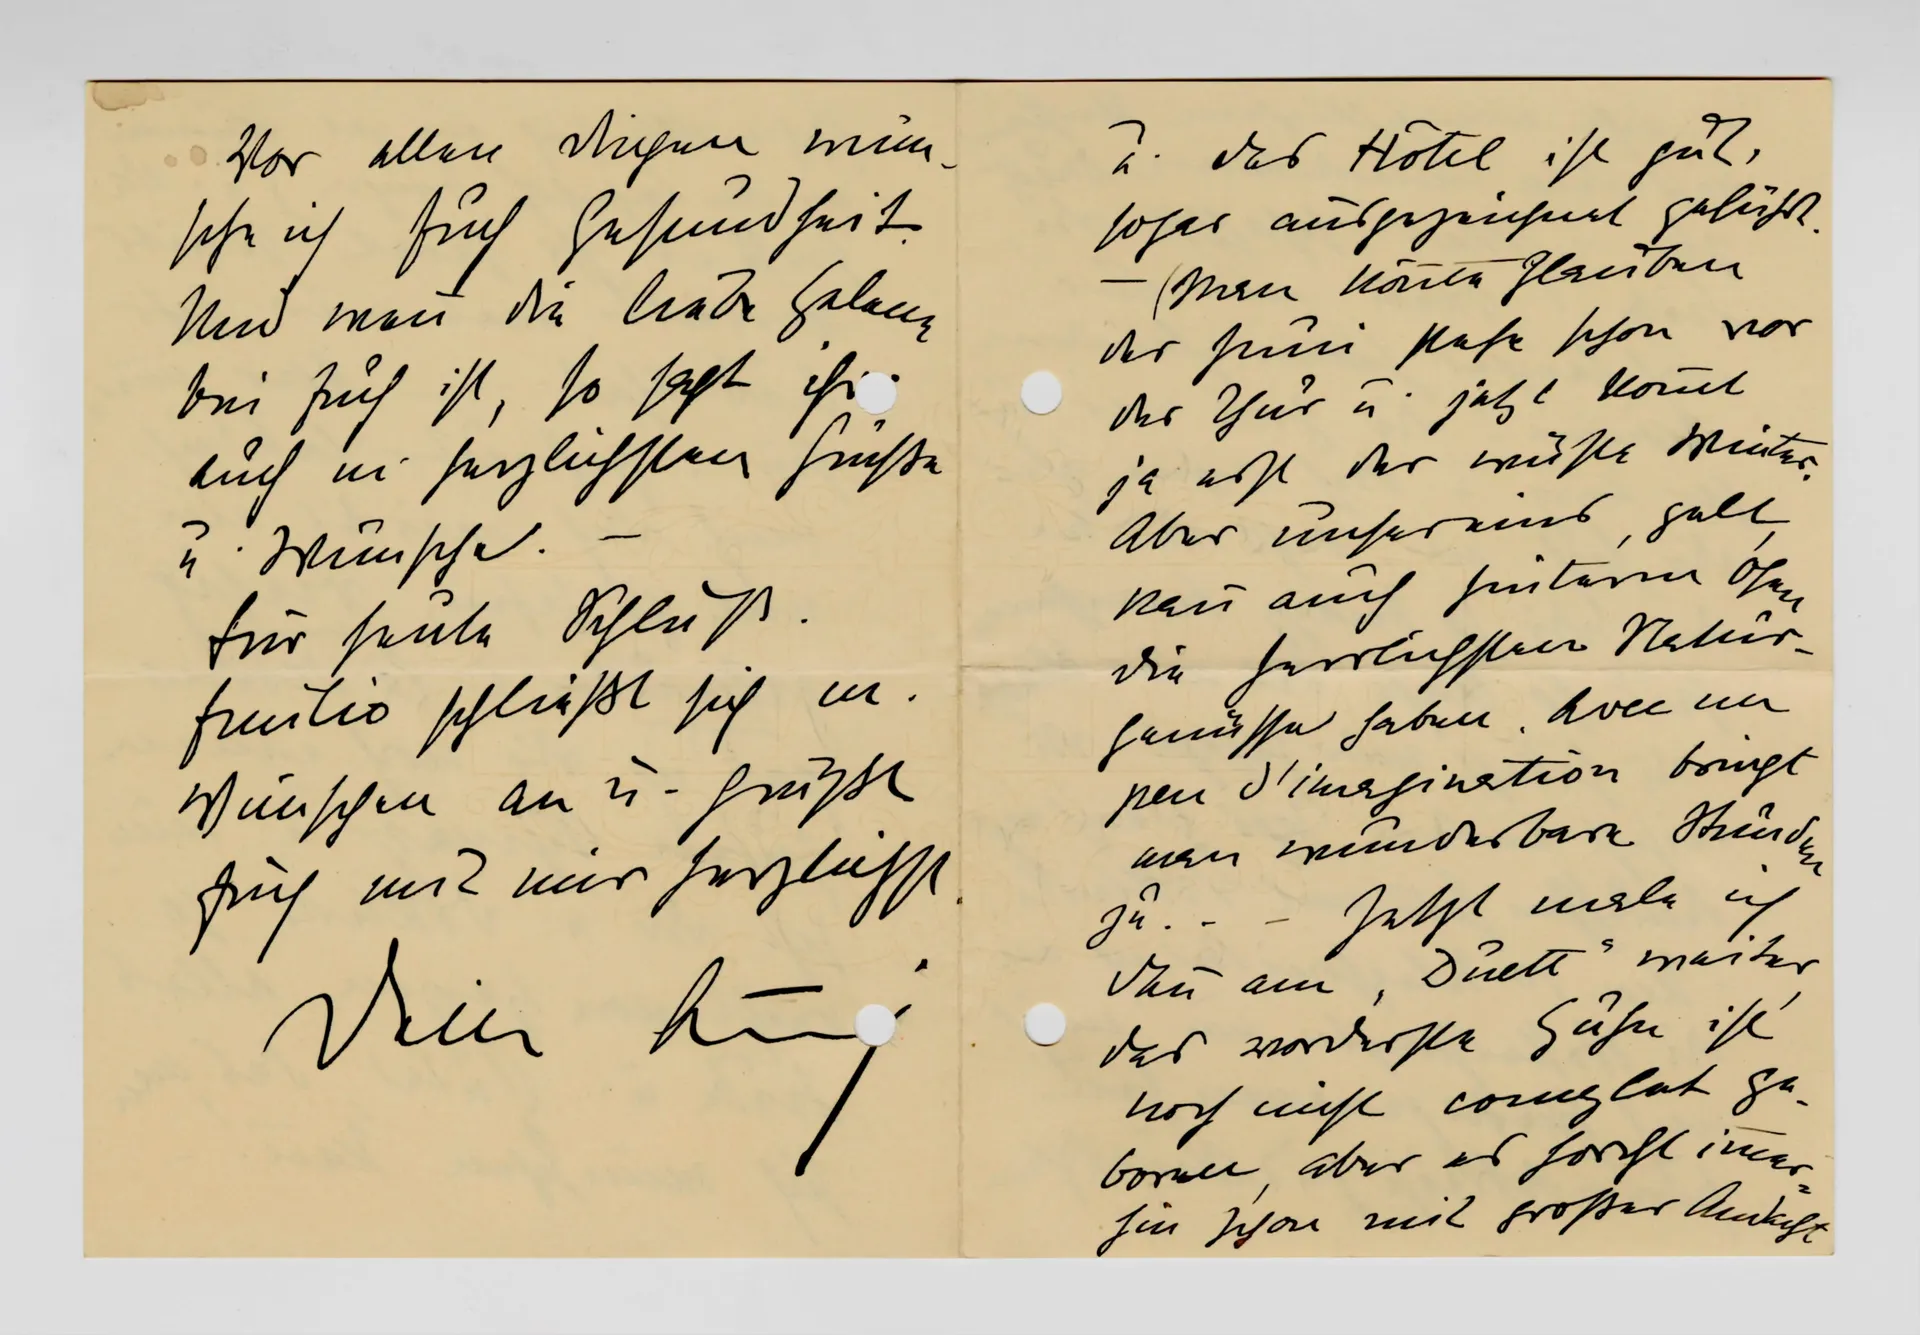 Vor allen Dingen wün-
sche ich Euch Gesundheit.
Und wen̄ die liebe Helene
bei Euch ist, so sagt ihr
auch m. herzlichsten Grüße
u. Wünsche. —
Für heute Schluß.
Emilio schließt sich m.
Wünschen an u. grüßt
Euch mit mir herzlichst.
Dein
u. das Hôtel ist gut,
sogar ausgezeichnet geführt.
— (Man kön̄te glauben
der Juni stehe schon vor
der Thür u. jetzt kom̄t
ja erst der wüste Winter.
Aber unsereins, gell,
kan̄ auch hinterm Ofen
die herrlichsten Natur-
genüsse haben. Avec un
peu d'imagination bringt
man wunderbare Stunden
zu. - - Jetzt male ich
dan̄ am „Duett" weiter,
das vorderste ist
noch nicht complet ge-
boren, aber es horcht im̄er-
hin schon mit großer Andacht